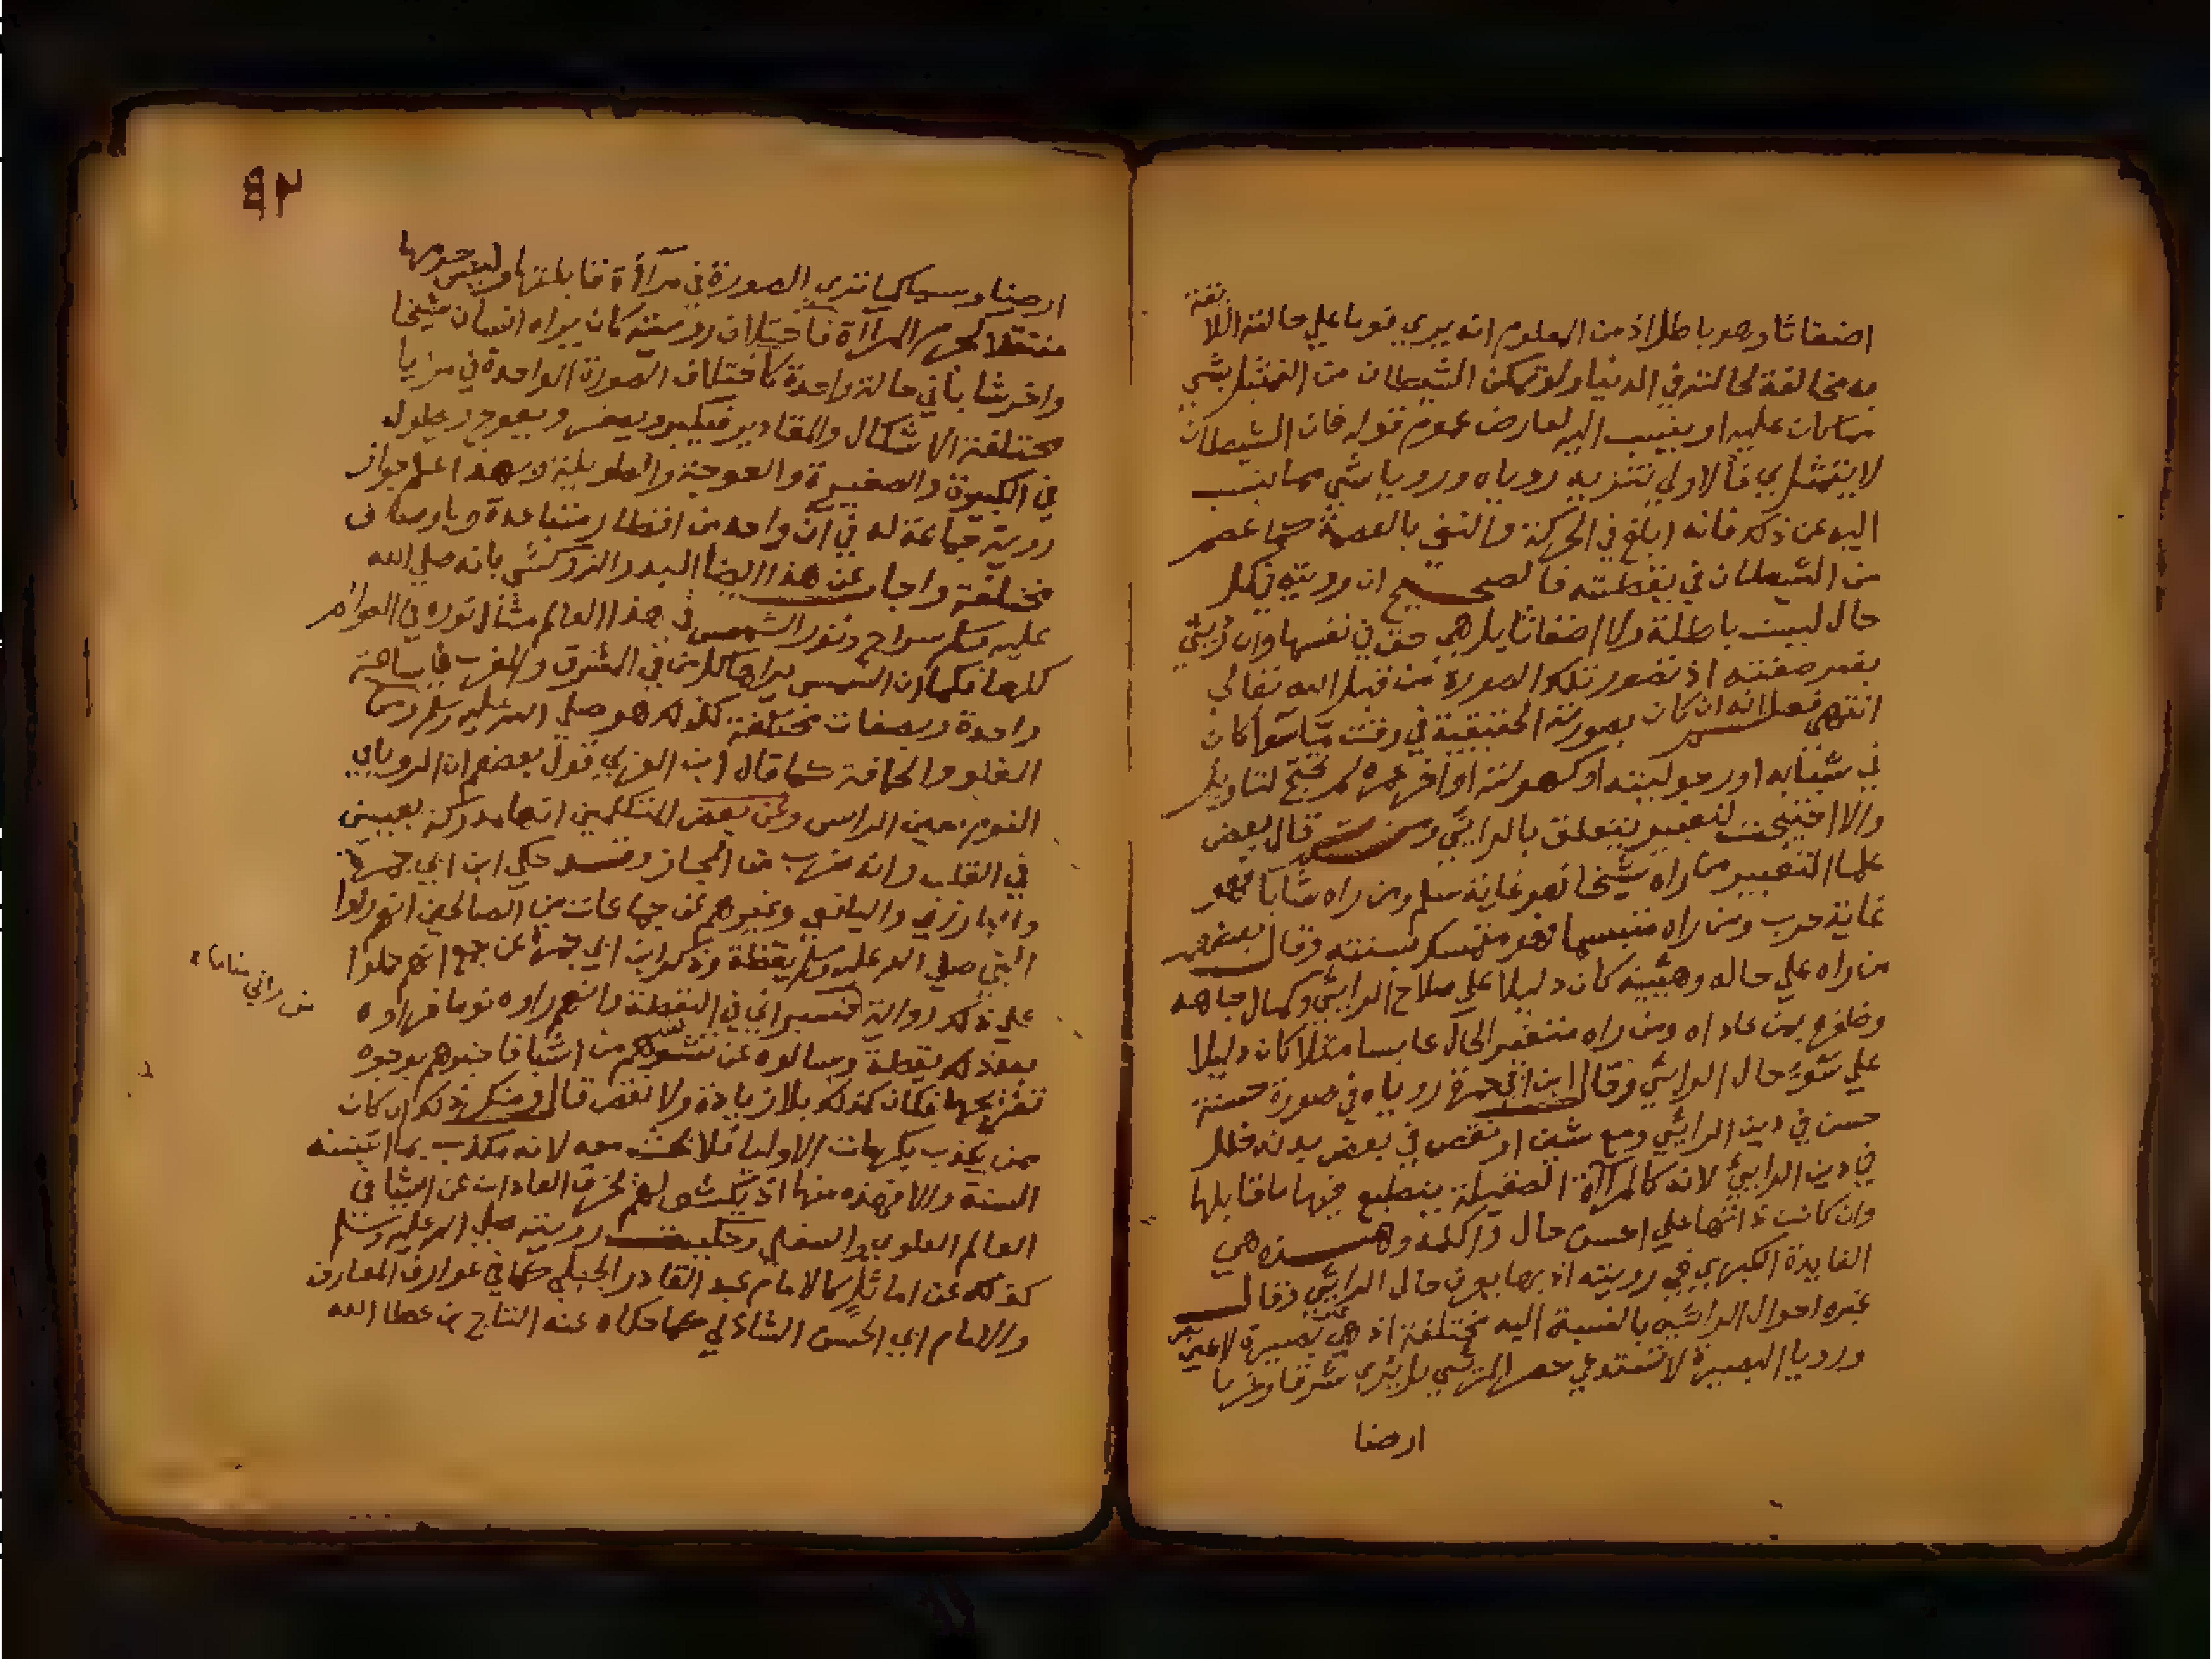 اضغاثا وهو باطل اذ من المعلوم انه يري نوما علي حالته اللا
ئقة
به مخالفة لحالته في الدنيا ولو تمكن الشيطان من التمثيل بشي
مما كان عليه او ينسب اليه لعارض عموم قوله فان الشيطان
لا يتمثل بي فالاولي تنزيه روياه ورويا شي مما ينسب
اليه عن ذلك فانه ابلغ في الحرمة واليق بالعصمة كما عصم
من الشيطان في يقظته فالصحيح ان رويته في كل
حال ليست باطلة ولا اضغاثا بل هي حق في نفسها وان رئي
بغير صفته اذ تصور تلك الصورة من قبل الله تعالي
انتهي فعلم انه ان كان بصورته الحقيقية في وقت ما سوا كان
في شبابه او رجوليته او كهولته او اخر عمره لم تحتج لتاويل
والا احتيجت لتعبير يتعلق بالرائي ومن ثم قال بعض
علما التعبير من راه شيخا فهو غاية سلم ومن راه شابا فهو
غاية حرب ومن راه متبسما فهو متمسك بسنته وقال بعضهم
من راه علي حاله وهيئته كان دليلا علي صلاح الرائي وكمال جاهه
وظفره بمن عاداه ومن راه متغير الحال عابسا مثلا كان دليلا
علي سوء حال الرائي وقال ابن ابي جمرة روياه في صورة حسنة
حسن في دين الرائي ومع شين او نقص في بعض بدنه خلل
في دين الرائي لانه كالمرآة الصقيلة ينطبع فيها ما قابلها
وان كانت ذاتها علي احسن حال واكمله وهذه هي
الفايدة الكبري في رويته اذ بها يعرف حال الرائي وقال
غيره احوال الرائين بالنسبة اليه مختلفة اذ هي بصيرة لا عين
ورويا البصيرة لا تستدعي حصر المرئي بل يري شرقا وغربا
ارضا
٩٢
ارضا وسما كما تري الصورة في مرآة قابلتها وليس جرمها
منتقلا لجرم المرآة فاختلاف رويته كان يراه انسان شيخا
واخر شابا في حالة واحدة كاختلاف الصورة الواحدة في مرايا
مختلفة الاشكال والمقادير فيكبر ويصغر ويعوج ويطول
في الكبيرة والصغيرة والعوجة والطويلة وبهذا علم جواز
روية جماعة له في آن واحد من اقطار متباعدة وباوصاف
مختلفة واجاب عن هذا ايضا البدر الزركشي بانه صلي الله
عليه وسلم سراج ونور الشمس في هذا العالم مثال نوره في العوالم
كلها فكما ان الشمس يراها كل من في المشرق والمغرب في ساعة
واحدة وبصفات مختلفة كذلك هو صلي الله عليه وسلم ومن
الغلو والحماقة كما قال ابن العربي قول بعضهم ان الرويا في
النوم بعين الراس وعن بعض المتكلمين انها مدركة بعينين
في القلب وانه ضرب من المجاز وقد حكي ابن ابي جمرة
والبارزي واليافعي وغيرهم عن جماعات من الصالحين انهم راوا
النبي صلي الله عليه وسلم يقظة وذكر ابن ابي جمرة عن جمع انهم حملوا
علي ذلك رواية فسيراني في اليقظة وانهم راوه نوما فراوه
من راني مناما
بعد ذلك يقظة وسالوه عن تشوشهم من اشيا فاخبرهم بوجوه
تفريجها فكان كذلك بلا زيادة ولا نقص قال ومنكر ذلك ان كان
ممن يكذب بكرامات الاوليا فلا بحث معه لانه مكذب بما اثبتته
السنة والا فهذه منها اذ يكشف لهم بخرق العادات عن اشيا في
العالم العلوي والسفلي وحكيت رويته صلي الله عليه وسلم
كذلك عن اماثل كالامام عبد القادر الجيلي كما في عوارف المعارف
والامام ابي الحسن الشاذلي كما حكاه عنه التاج بن عطا الله